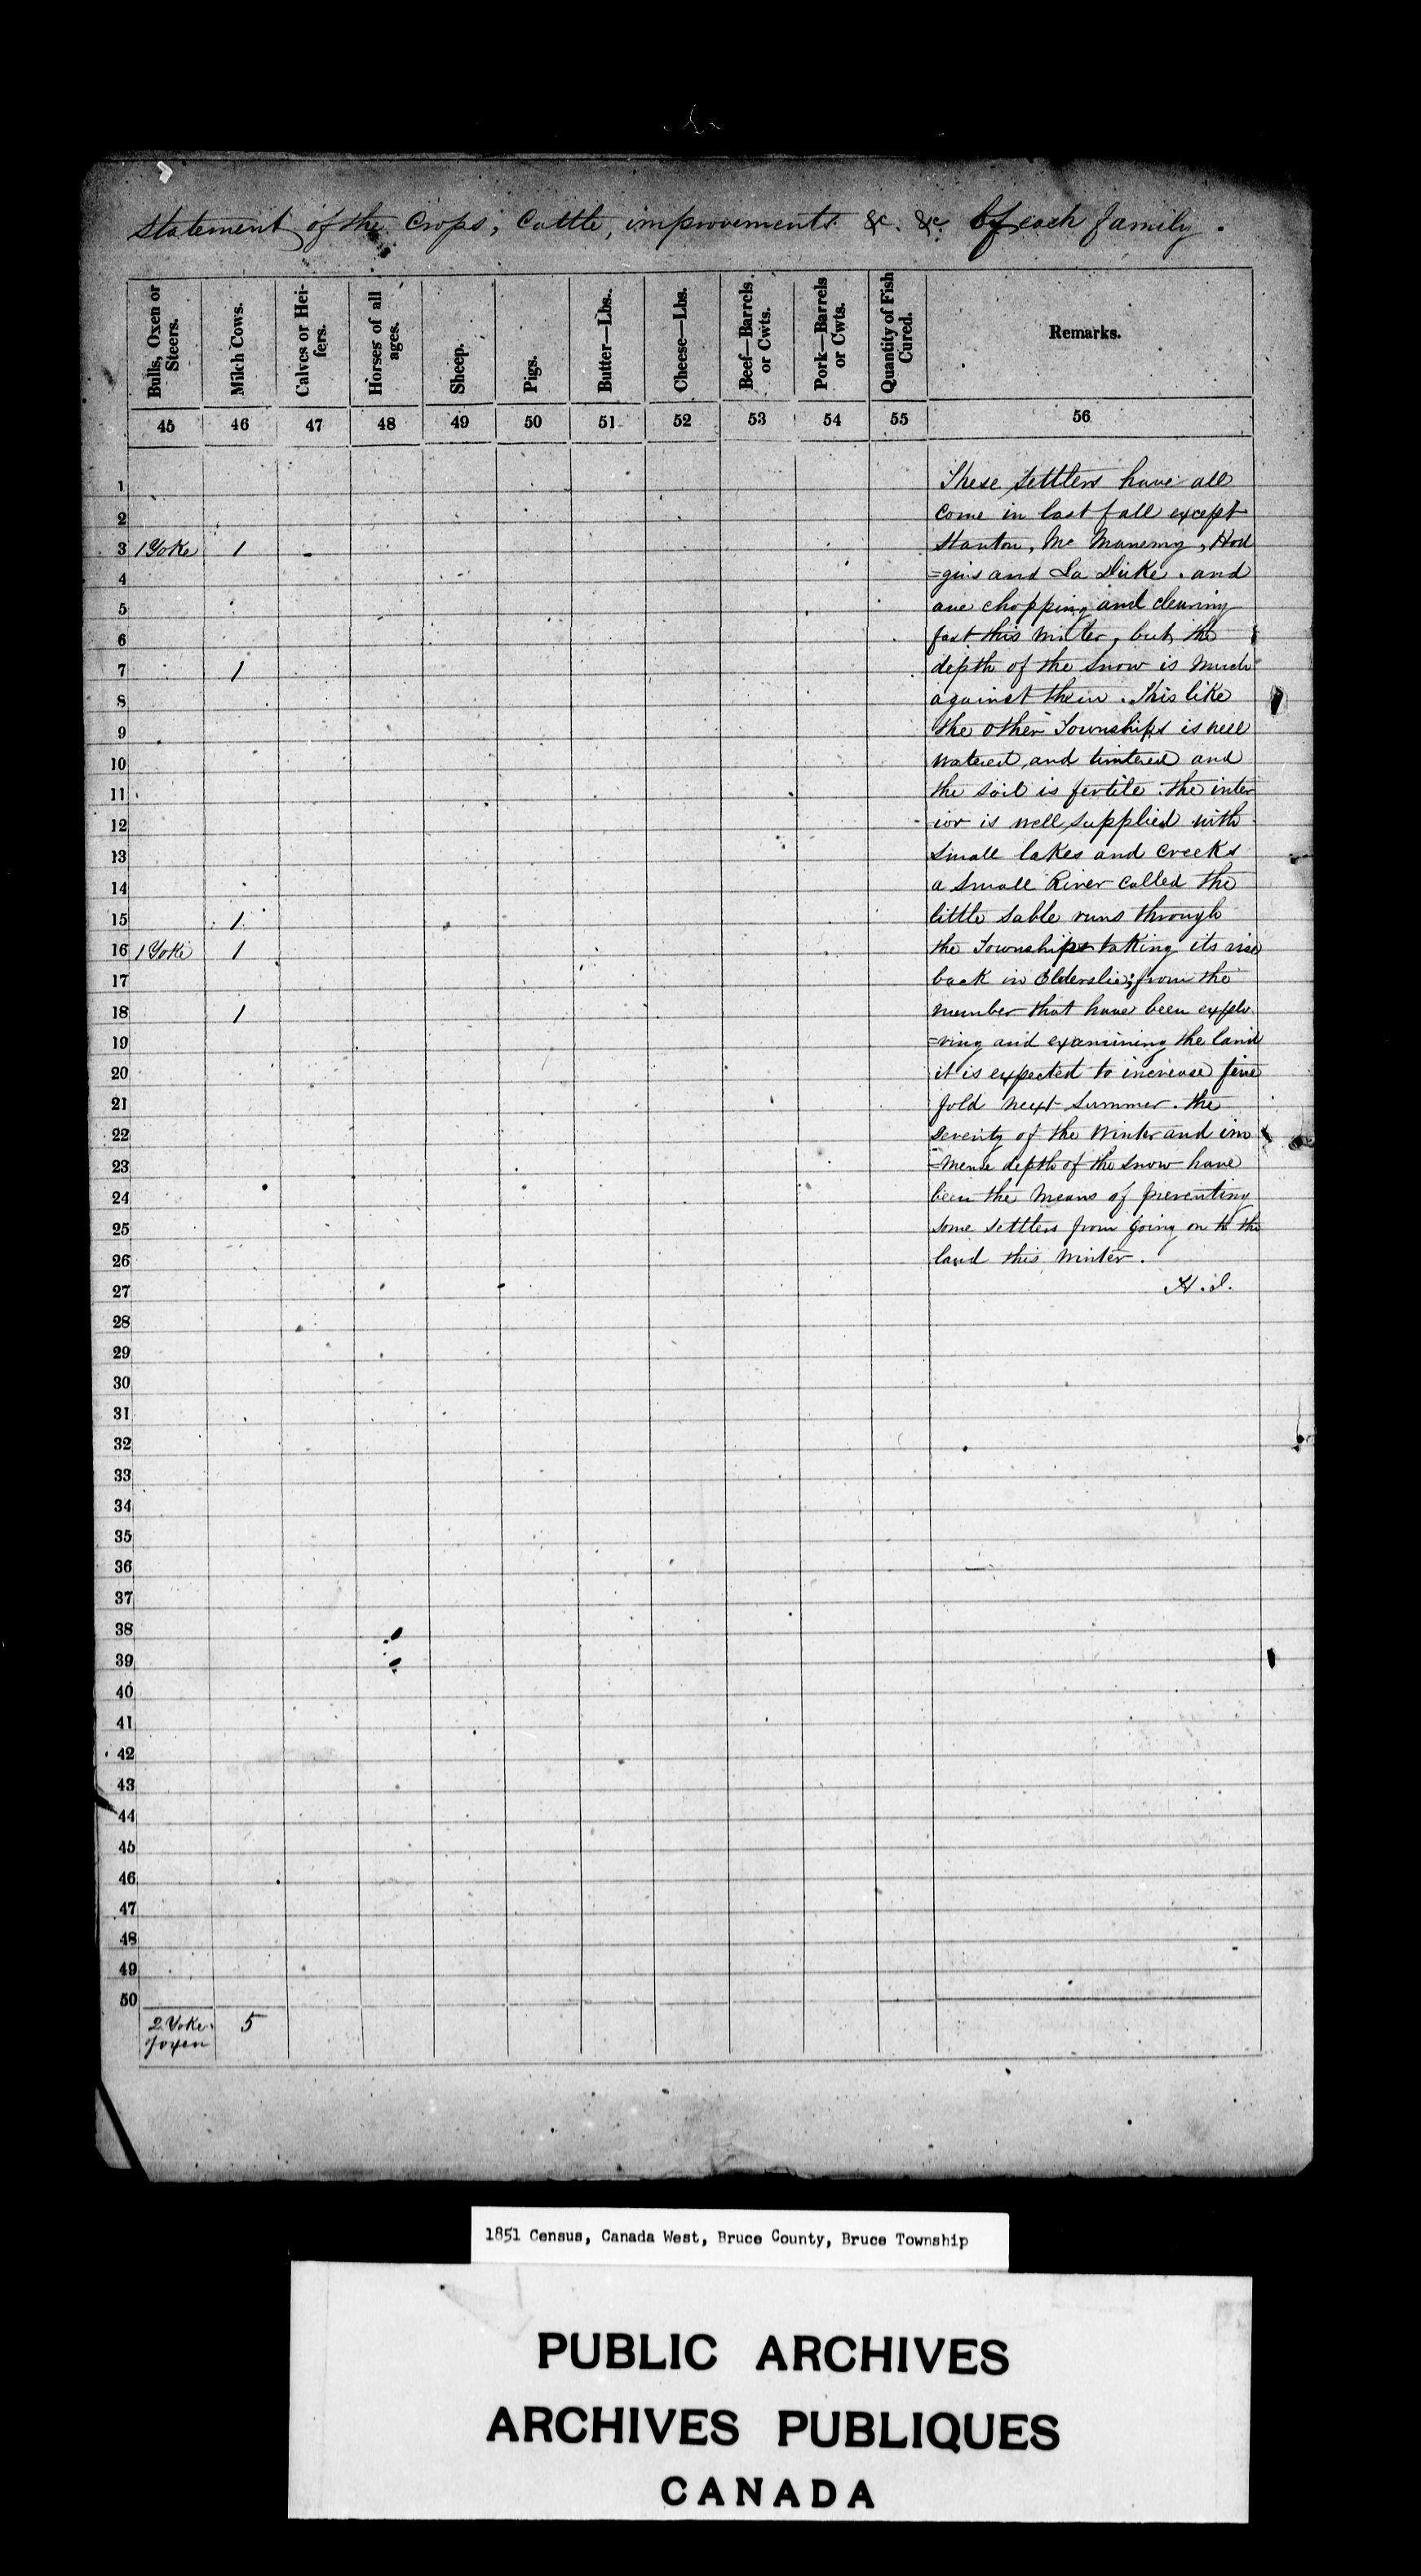 Statement of the Crops, Cattle, improvements &c. &c. of each family.
Bulls, Oxen or Steers. Milch Cows. Calves or Heifers. Horses of all ages. Sheep. Pigs. Butter—Lbs. Cheese—Lbs. Beef—Barrels or Cwts. Pork—Barrels or Cwts. Quantity of Fish Cured. Remarks.
45 46 47 48 49 50 51 52 53 54 55 56
1 These Settlers have all
2 come in last fall except
3 1 Yoke 1 Stanton, Mc Manemy, Hod
4 =gins and La Duke. and
5 are chopping and clearing
6 fast this Winter, but the
7 1 depth of the Snow is Much
8 against them. This like
9 the other Townships is well
10 watered, and timbered and
11 the soil is fertile. the inter
12 ior is well supplied with
13 Small lakes and Creeks
14 a Small River called the
15 1 little Sable runs through
16 1 Yoke 1 the Townships taking its rise
17 back in Elderslie; from the
18 1 number that have been explo
19 =ring and examining the land
20 it is expected to increase five
21 fold next Summer. the
22 Severity of the Winter and im
23 =mense depth of the Snow have
24 been the Means of preventing
25 some settlers from going on to the
26 land this Winter.
27 H.I.
28
29
30
31
32
33
34
35
36
37
38
39
40
41
42
43
44
45
46
47
48
49
50
2 Yoke 5
of oxen
1851 Census, Canada West, Bruce County, Bruce Township
PUBLIC ARCHIVES
ARCHIVES PUBLIQUES
CANADA